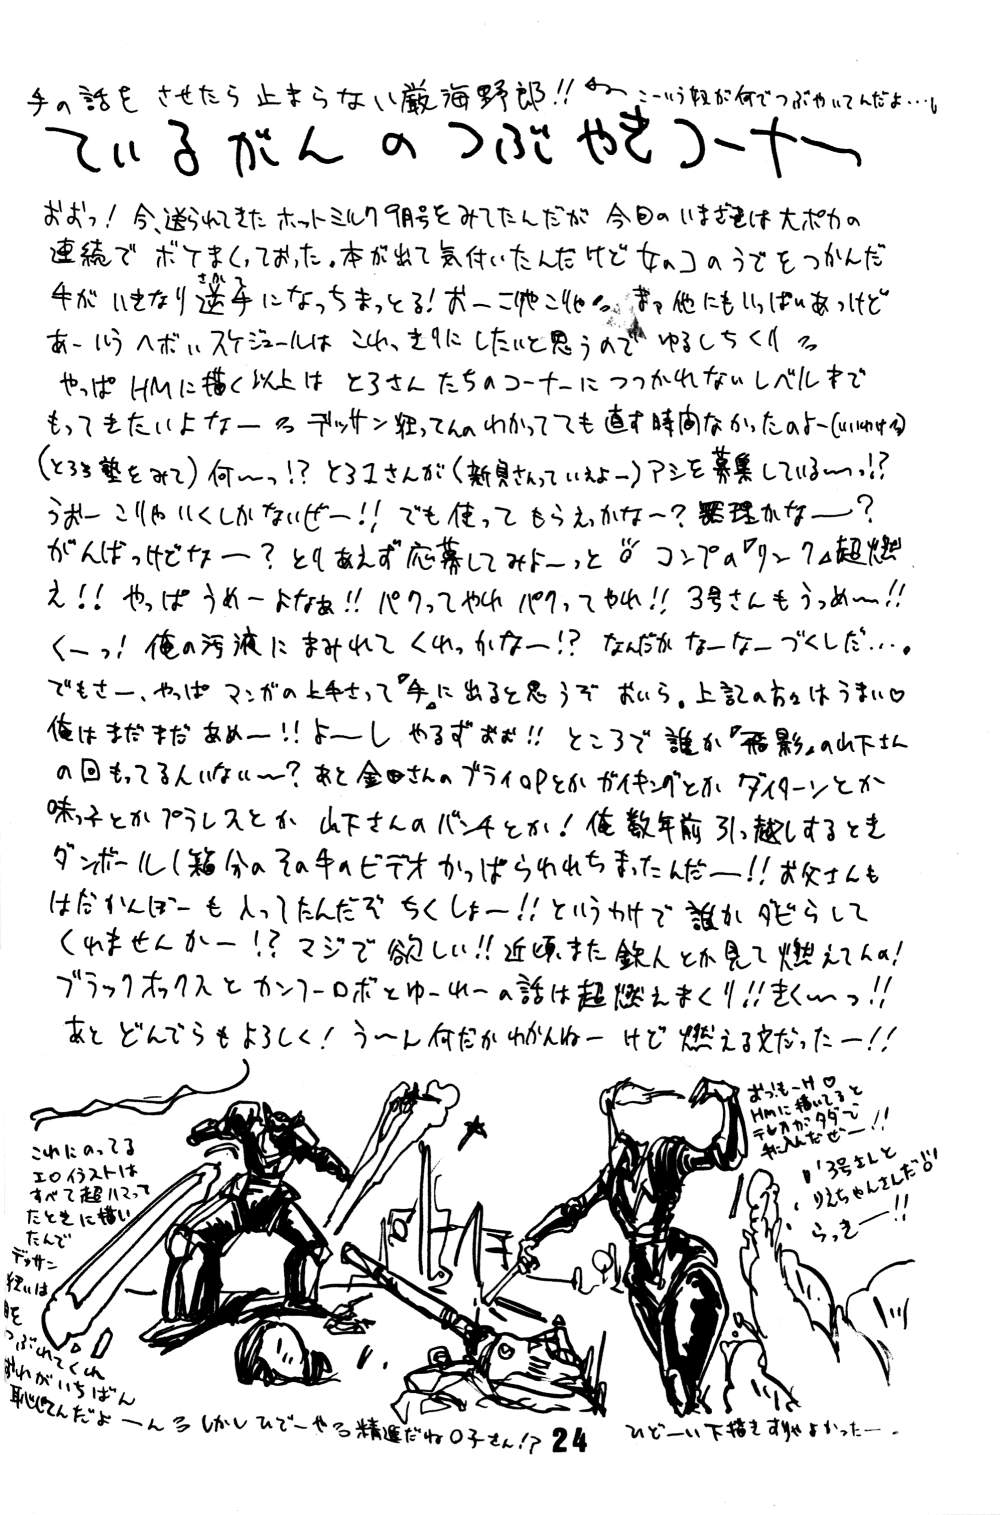 手の話をさせたら止まらない厳海野郎!! こーいう奴が何でつぶやいてんだよ…。
ているがんのつぶやきコーナー
おおっ!今、送られてきたホットミルク9月号をみてたんだが今回のいまざきは大ポカの
連続でボケまくっておった。本が出て気付いたんだけど女のコのうでをつかんだ
手がいきなり逆手になっちまっとる!おーこりゃこりゃ まァ他にもいっぱいあっけど
さかて
あーいうヘボいスケジュールはこれっきりにしたいと思うのでゆるしちくり
やっぱHMに描く以上はとろさんたちのコーナーにつつかれないレベルまで
もってきたいよなー デッサン狂ってんのわかってても直す時間なかったのよー(いいわけ)
(とろろ塾をみて)何〜っ!?とろ1さんが(新貝さんっていえよー)アシを募集している〜っ!?
うおーこりゃいくしかないぜー!!でも使ってもらえっかな〜?無理かなー?
がんばっけどなー?とりあえず応募してみよーっと コンプの『リンク』超燃
え!!やっぱうめーよなぁ!!パクってやれパクってやれ!!3号さんもうっめ〜!!
くーっ!俺の汚液にまみれてくれっかなー!?なんだかなーなーづくしだ…。
でもさー、やっぱマンガの上手さって『手』に出ると思うぞおいら。上記の方々はうまい♡
俺はまだまだあめー!!よーしやるずおぉ!!ところで誰か『飛影』の山下さん
の回もってる人いない〜?あと金田さんのブライOPとかガイキングとかダイターンとか
味っ子とかプラレスとか山下さんのバンチとか!俺数年前引っ越しするとき
ダンボール1箱分のその手のビデオかっぱらわれちまったんだー!!お父さんも
はだかんぼーも入ってたんだぞちくしょー!!というわけで誰かダビらして
くれませんかー!?マジで欲しい!!近頃また鉄人とか見て燃えてんの!
ブラックオックスとカンフーロボとゆーれーの話は超燃えまくり!!きく〜っ!!
あとどんでらもよろしく!う〜ん何だかわかんねーけど燃える文だったー!!
おっ!もーH♡
HMに描いてると
テレカがタダで
手に入んだぜー!!
3号さんと
りえちゃんさんだ
らっきー!!
これにのってる
エロイラストは
すべて超ハマって
たときに描い
たんで
デッサン
狂いは
目を
つぶれてくれ
おれがいちばん
恥じてんだよーん しかしひでーや 精進だね〇子さん!?
24
ひどーい下描きすりゃよかったー。